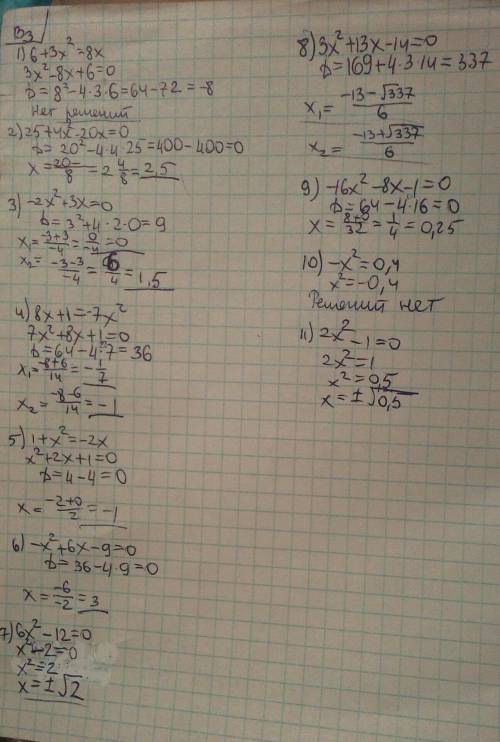 В3
1) 6+3x²=8x
3x²-8x+6=0
D=8²-4·3·6=64-72=-8
Нет решений
2) 25+4x²-20x=0
D=20²-4·4·25=400-400=0
x=20-/8=2 4/8=2,5
3) -2x²+3x=0
D=3²+4·2·0=9
x₁=-3+3/-4=0/-4=0
x₂=-3-3/-4=6/4=1,5
4) 8x+1=-7x²
7x²+8x+1=0
D=64-4·7=36
x₁=-8+6/14=-1/7
x₂=-8-6/14=-1
5) 1+x²=-2x
x²+2x+1=0
D=4-4=0
x=-2+0/2=-1
6) -x²+6x-9=0
D=36-4·9=0
x=-6/-2=3
7) 6x²-12=0
x²-2=0
x²=2
x=±√2
8) 3x²+13x-14=0
D=169+4·3·14=337
x₁=-13-√337/6
x₂=-13+√337/6
9) -16x²-8x-1=0
D=64-4·16=0
x=8+0/32=1/4=0,25
10) -x²=0,4
x²=-0,4
Решений нет
11) 2x²-1=0
2x²=1
x²=0,5
x=±√0,5